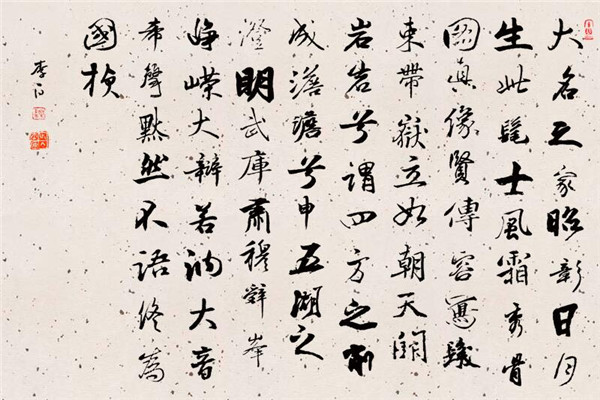 大名之家昭彰日月
生此髦士風霜秀骨
圖真像賢傳容寫髮
束帶嶽立如朝天闕
岩岩兮謂四方之削
成澹澹兮申五湖之
澄明武庫肅穆辭峯
崢嶸大辯若訥大音
希聲默然不語終為
國楨
李